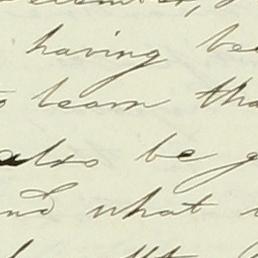 having be
to learn tha
also be g
and what